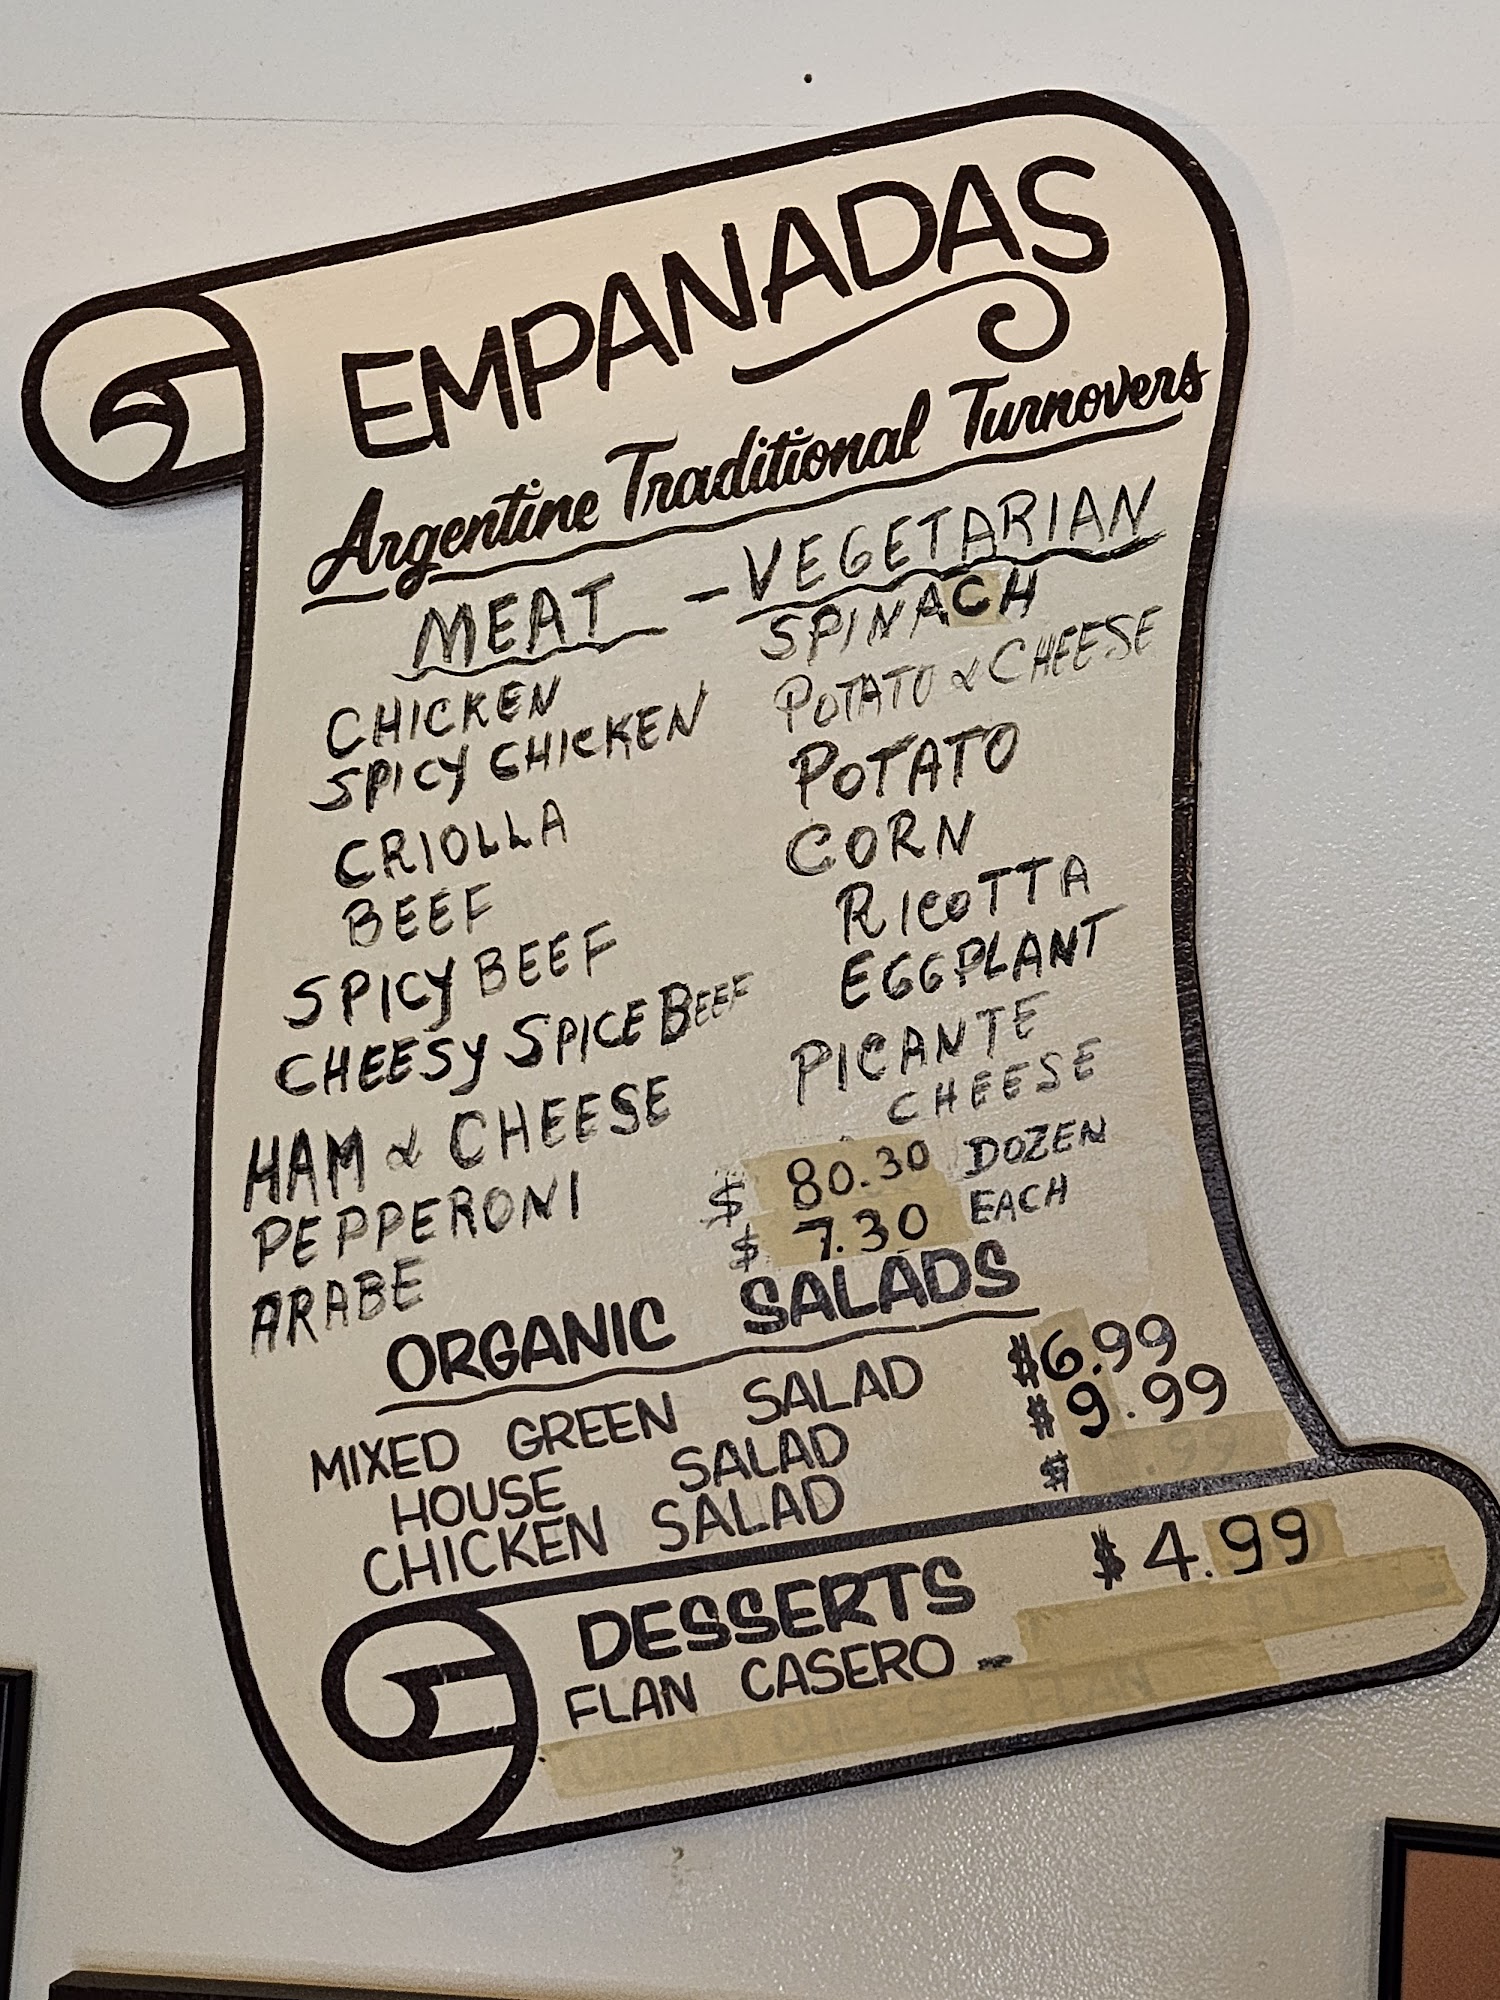 EMPANADAS
Argentine Traditional Turnovers
MEAT
CHICKEN
SPICY CHICKEN
CRIOLLA
BEEF
SPICY BEEF
CHEESY SPICE BEEF
HAM & CHEESE
PEPPERONI
ARABE
- VEGETARIAN
SPINACH
POTATO & CHEESE
POTATO
CORN
RICOTTA
EGGPLANT
PICANTE
CHEESE
$ 80.30 DOZEN
$ 7.30 EACH
ORGANIC SALADS
MIXED GREEN SALAD $6.99
HOUSE SALAD $9.99
CHICKEN SALAD $ .99
DESSERTS $4.99
FLAN CASERO -
CREAM CHEESE FLAN